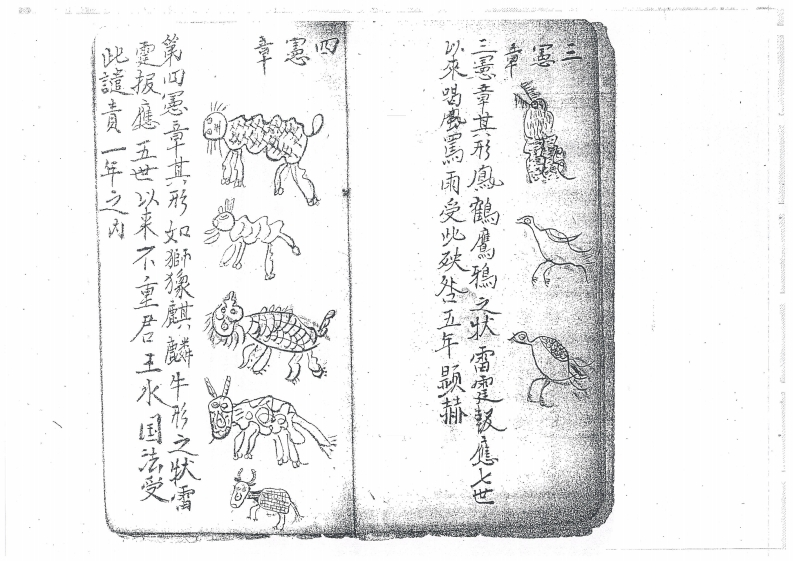 三憲章
三憲章其形鳳鶴鷹鴉之状雷霆報應七世
以來喝風罵雨受此殃咎五年顕赫
四憲章
第四憲章其形如獅猿麒麟牛形之状雷
霆报應五世以来不重君王水国法受
此譴責一年之内